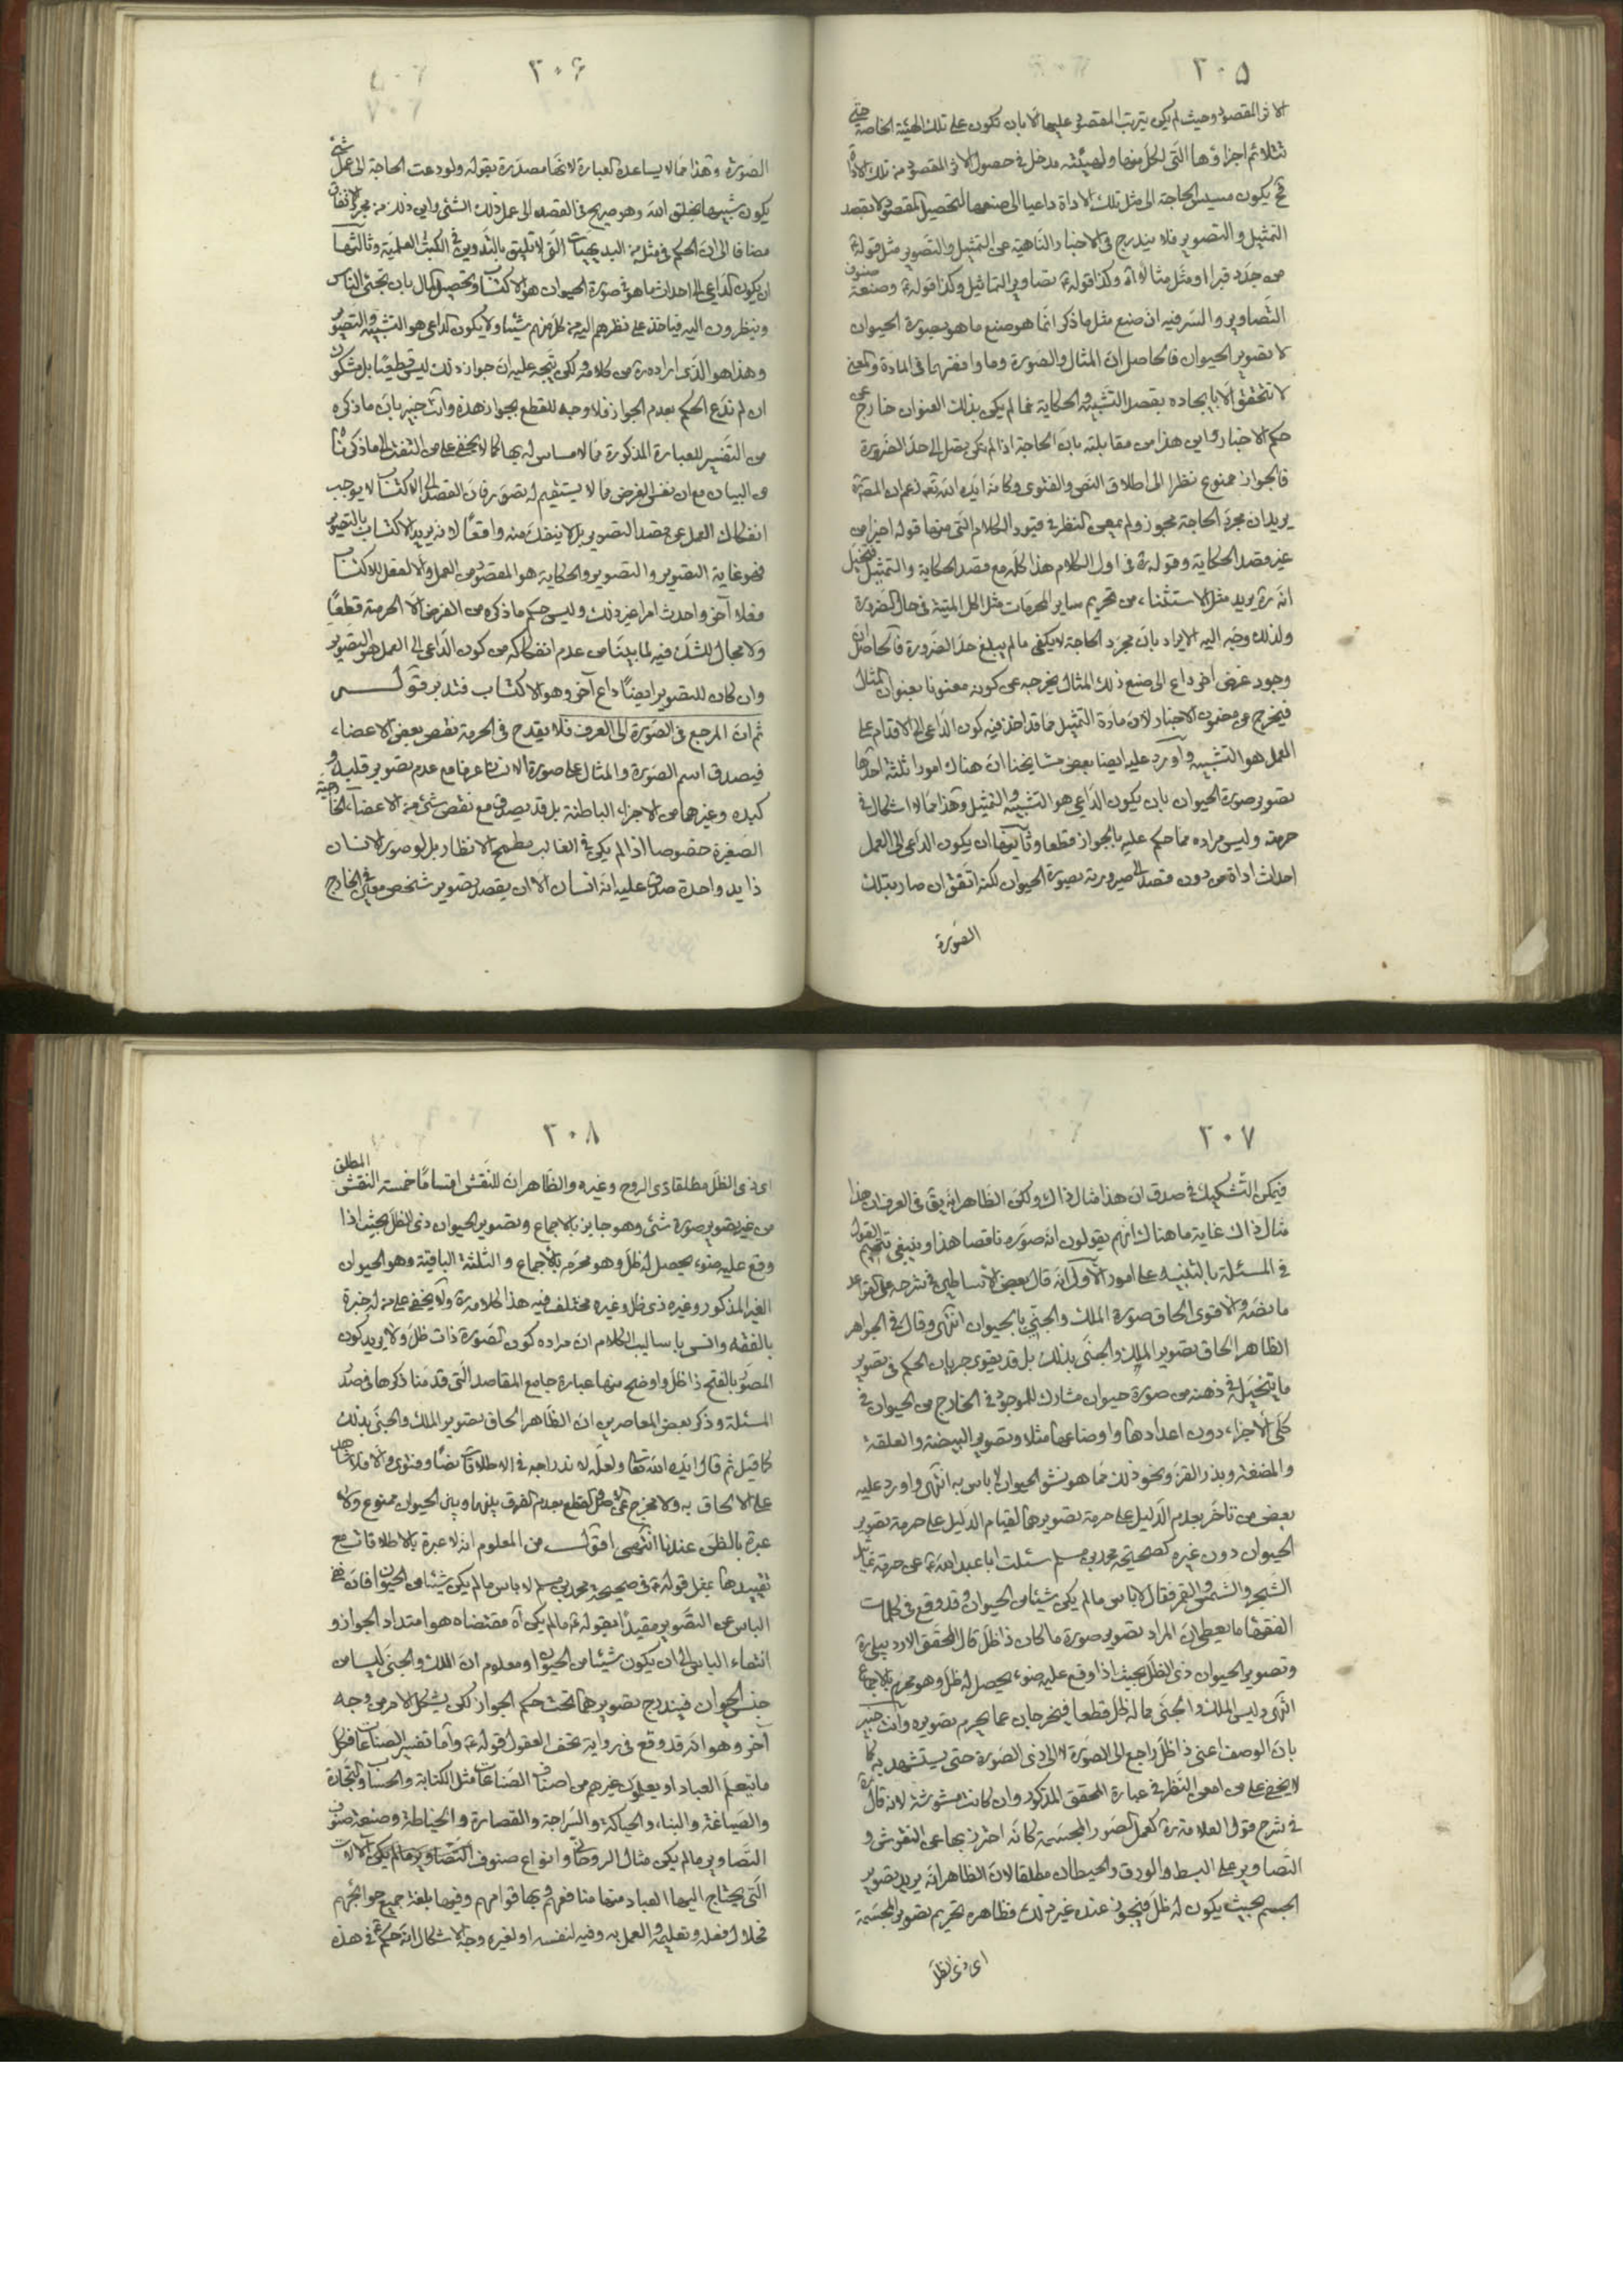 ٣٠٥
الاثر المقصود وحيث لم يكن يترتب المقصود عليها الا بان تكون على تلك الهيئة الخاصة حتى
تتلائم اجزاؤها التى لكل منها ولهيئته مدخل فى حصول الاثر المقصود من تلك الاداة
فح يكون مسيس الحاجة الى مثل تلك الاداة داعيا الى صنعها لتحصيل المقصود لا بقصد
التمثيل والتصوير فلا يندرج فى الاخبار الناهية عن التمثيل والتصوير مثل قوله ع
من جدد قبرا او مثل مثالا اه وكذا قوله ع تصاوير التماثيل وكذا قوله ع وصنعة صنوف
التصاوير والسر فيه ان صنع مثل ما ذكر انما هو صنع ما هو بصورة الحيوان
لا تصوير الحيوان فالحاصل ان المثال والصورة وما وافقهما فى المادة والمعنى
لا تتحقق الا بايجاده بقصد التشبيه والحكاية فما لم يكن بذلك العنوان خارج عن
حكم الاخبار واين هذا من مقابلته بان الحاجة اذا لم تكن تصل الى حد الضرورة
فالجواز ممنوع نظرا الى اطلاق النص والفتوى وكانه ايده الله تعم زعم ان المص ره
يريد ان مجرد الحاجة مجوز ولم يمعن النظر فى قيود الكلام التى منها قوله اخيرا من
غير قصد الحكاية وقوله ره فى اول الكلام هذا كله مع قصد الحكاية والتمثيل فتخيل
انه ره يريد مثل الاستثناء من تحريم ساير المحرمات مثل اكل الميتة فى حال الضرورة
ولذلك وجه اليه الايراد بان مجرد الحاجة لا يكفى ما لم يبلغ حد الضرورة فالحاصل ان
وجود غرض اخر داع الى صنع ذلك المثال يخرجه عن كونه معنونا بعنوان المثال
فيخرج من مضمون الاخبار لان مادة التمثيل مما قد اخذ فيه كون الداعى الى الاقدام على
العمل هو التشبيه واورد عليه ايضا بعض مشايخنا ان هناك امورا ثلثة احدها
تصوير صورة الحيوان بان يكون الداعى هو التشبيه والتمثيل وهذا مما لا اشكال فى
حرمته وليس مراده مما حكم عليه بالجواز قطعا وثانيها ان يكون الداعى الى العمل
احداث اداة من دون قصد الى صيرورته بصورة الحيوان لكنه اتفق ان صار بتلك
الصورة
٣٠۶
الصورة وهذا مما لا يساعده العبارة لانها مصدرة بقوله ولو دعت الحاجة الى عمل شئ
يكون شبيها بخلق الله وهو صريح فى القصد الى عمل ذلك الشئ واين ذلك من مجرد الاتفاق
مضافا الى ان الحكم فى مثله من البديهيات التى لا تليق بالتدوين فى الكتب العلمية وثالثها
ان يكون الداعى الى احداث ما هو فى صورة الحيوان هو الاكتساب وتحصيل المال بان تجئ الناس
وينظرون اليه فياخذ على نظرهم اليه من كل منهم شيئا ولا يكون الداعى هو التشبيه والتصوير
وهذا هو الذى اراده ره من كلامه ولكن يتجه عليه ان جواز ذلك ليس قطعيا بل مشكوك
ان لم ندع الحكم بعدم الجواز فلا وجه للقطع بجواز هذه وانت خبير بان ما ذكره
من التفسير للعبارة المذكورة مما لا مساس له بها كما لا يخفى على من التفت الى ما ذكرناه
من البيان مع ان نفس الغرض مما لا يستقيم له تصور فان القصد الى الاكتساب لا يوجب
انفكاك العمل عن قصد التصوير بل لا ينفك منه واقعا لانه يريد الاكتساب بالتصوير
فهو غاية التصوير والتصوير والحكاية هو المقصود من العمل والا لفعل للاكتساب
فعلا آخر واحدث امرا غير ذلك وليس حكم ما ذكره من الغرض الا الحرمة قطعا
ولا مجال للشك فيه لما بينا من عدم انفكاكه من كون الداعى الى العمل هو التصوير
وان كان للتصوير ايضا داع آخر وهو الاكتساب فتدبر قوله
ثم ان المرجع فى الصورة الى العرف فلا يقدح فى الحرمة نقص بعض الاعضاء
فيصدق اسم الصورة والمثال على صورة الانسان عرفا مع عدم تصوير قلبه و
كبده وغيرهما من الاجزاء الباطنة بل قد يصدق مع نقص شئ من الاعضاء الخارجية
الصغيرة خصوصا اذا لم يكن فى الغالب مطمح الانظار بل لو صور الانسان
ذا يد واحدة صدق عليه انه انسان الا ان يقصد تصوير شخص معين فى الخارج
٣٠٧
فيمكن التشكيك فى صدق ان هذا مثال ذاك ولكن الظاهر انه يق فى العرف ان هذا
مثال ذاك غاية ما هناك انهم يقولون انه صوره ناقصا هذا وينبغى تتميم القول
فى المسئلة بالتنبيه على امور الاول انه قال بعض الاساطين فى شرحه على القواعد
ما نصه والاقوى الحاق صورة الملك والجنى بالحيوان انتهى وقال فى الجواهر
الظاهر الحاق تصوير الملك والجنى بذلك بل قد يقوى جريان الحكم فى تصوير
ما يتخيله فى ذهنه من صورة حيوان مشارك للموجود فى الخارج من الحيوان فى
كلى الاجزاء دون اعدادها واوضاعها مثلا وتصوير البيضة والعلقة
والمضغة وبذر القز ونحو ذلك مما هو نشو الحيوان لا باس به انتهى واورد عليه
بعض من تاخر بعدم الدليل على حرمة تصويرهما لقيام الدليل على حرمة تصوير
الحيوان دون غيره كصحيحة محمد بن مسلم سئلت ابا عبد الله ع عن حرمة تماثيل
الشجر والشمس والقمر فقال لا باس ما لم يكن شيئا من الحيوان وقد وقع فى كلمات
الفقهاء ما يعطى ان المراد تصوير صورة ما كان ذا ظل قال المحقق الاردبيلى ره
وتصوير الحيوان ذى الظل بحيث اذا وقع عليه ضوء يحصل له ظل وهو محرم بالاجماع
انتهى وليس الملك والجنى مما له ظل قطعا فيخرجان عما يحرم تصويره وانت خبير
بان الوصف اعنى ذا ظل راجع الى الصورة لا الى ذى الصورة حتى يستشهد به كما
لا يخفى على من امعن النظر فى عبارة المحقق المذكور وان كانت مشوشة لانه قال ره
فى شرح قول العلامة ره كعمل الصور المجسمة كانه احترز بها عن النقوش و
التصاوير على البسط والورق والحيطان مطلقا لان الظاهر انه يريد تصوير
الجسم بحيث يكون له ظل فيجوز عنده غير ذلك فظاهره تحريم تصوير المجسمة
اى ذى الظل
٣٠٨
اى ذى الظل مطلقا ذى الروح وغيره والظاهر ان للنقش اقساما خمسة النقش المطلق
من غير تصوير صورة شئ وهو جايز بالاجماع وتصوير الحيوان ذى الظل بحيث اذا
وقع عليه ضوء يحصل له ظل وهو محرم بالاجماع والثلثة الباقية وهو الحيوان
الغير المذكور وغيره ذى ظل وغيره مختلف فيه هذا كلامه ره ولا يخفى على من له خبرة
بالفقه وانس باساليب الكلام ان مراده كون الصورة ذات ظل ولا يريد كون
المصور بالفتح ذا ظل واوضح منها عبارة جامع المقاصد التى قدمنا ذكرها فى صدر
المسئلة وذكر بعض المعاصرين ان الظاهر الحاق تصوير الملك والجنى بذلك
كما قيل ثم قال ايده الله تعالى ولعله لاندراجه فى الاطلاقات نصا وفتوى والا فلا شاهد
على الالحاق به ولا مخرج عن الاصل والقطع بعدم الفرق بينهما وبين الحيوان ممنوع ولا
عبرة بالظن عندنا انتهى اقول من المعلوم انه لا عبرة بالاطلاقات مع
تقييدها بمثل قوله ع فى صحيحة محمد بن مسلم لا باس ما لم يكن شيئا من الحيوان فان نفى
الباس عن التصوير مقيدا بقوله ع ما لم يكن اه مقتضاه هو امتداد الجواز و
انتفاء الباس الى ان يكون شيئا من الحيوان ومعلوم ان الملك والجنى ليسا من
جنس الحيوان فيندرج تصويرهما تحت حكم الجواز لكن يشكل الامر من وجه
آخر وهو انه قد وقع فى رواية تحف العقول قوله ع واما تفسير الصناعات فكل
ما يتعلم العباد او يعلمون غيرهم من اصناف الصناعات مثل الكتابة والحساب والتجارة
والصياغة والبناء والحياكة والسراجة والقصارة والخياطة وصنعة صنوف
التصاوير ما لم يكن مثال الروحانى وانواع صنوف الالات
التى يحتاج اليها العباد منها منافعهم وبها قوامهم وفيها بلغة جميع حوائجهم
فحلال فعله وتعليمه والعمل به وفيه لنفسه او لغيره وجه الاشكال انه حكم ع فى هذه